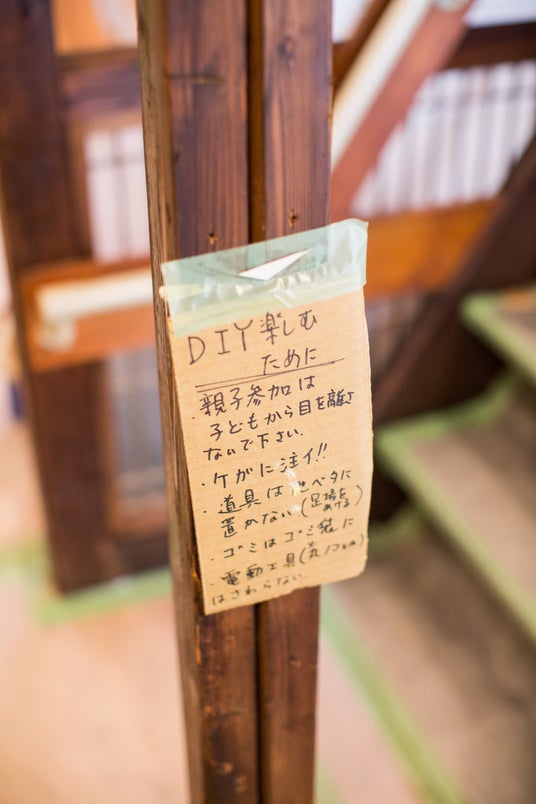 DIY 楽しむ
ために
・親子参加は
子どもから目を離さ
ないで下さい.
・ケガに注イ!!
・道具は ベタに
置かない(足場を
あける)
・ゴミはゴミ袋に
・電動工具(丸ノコetc)
はさわらない.